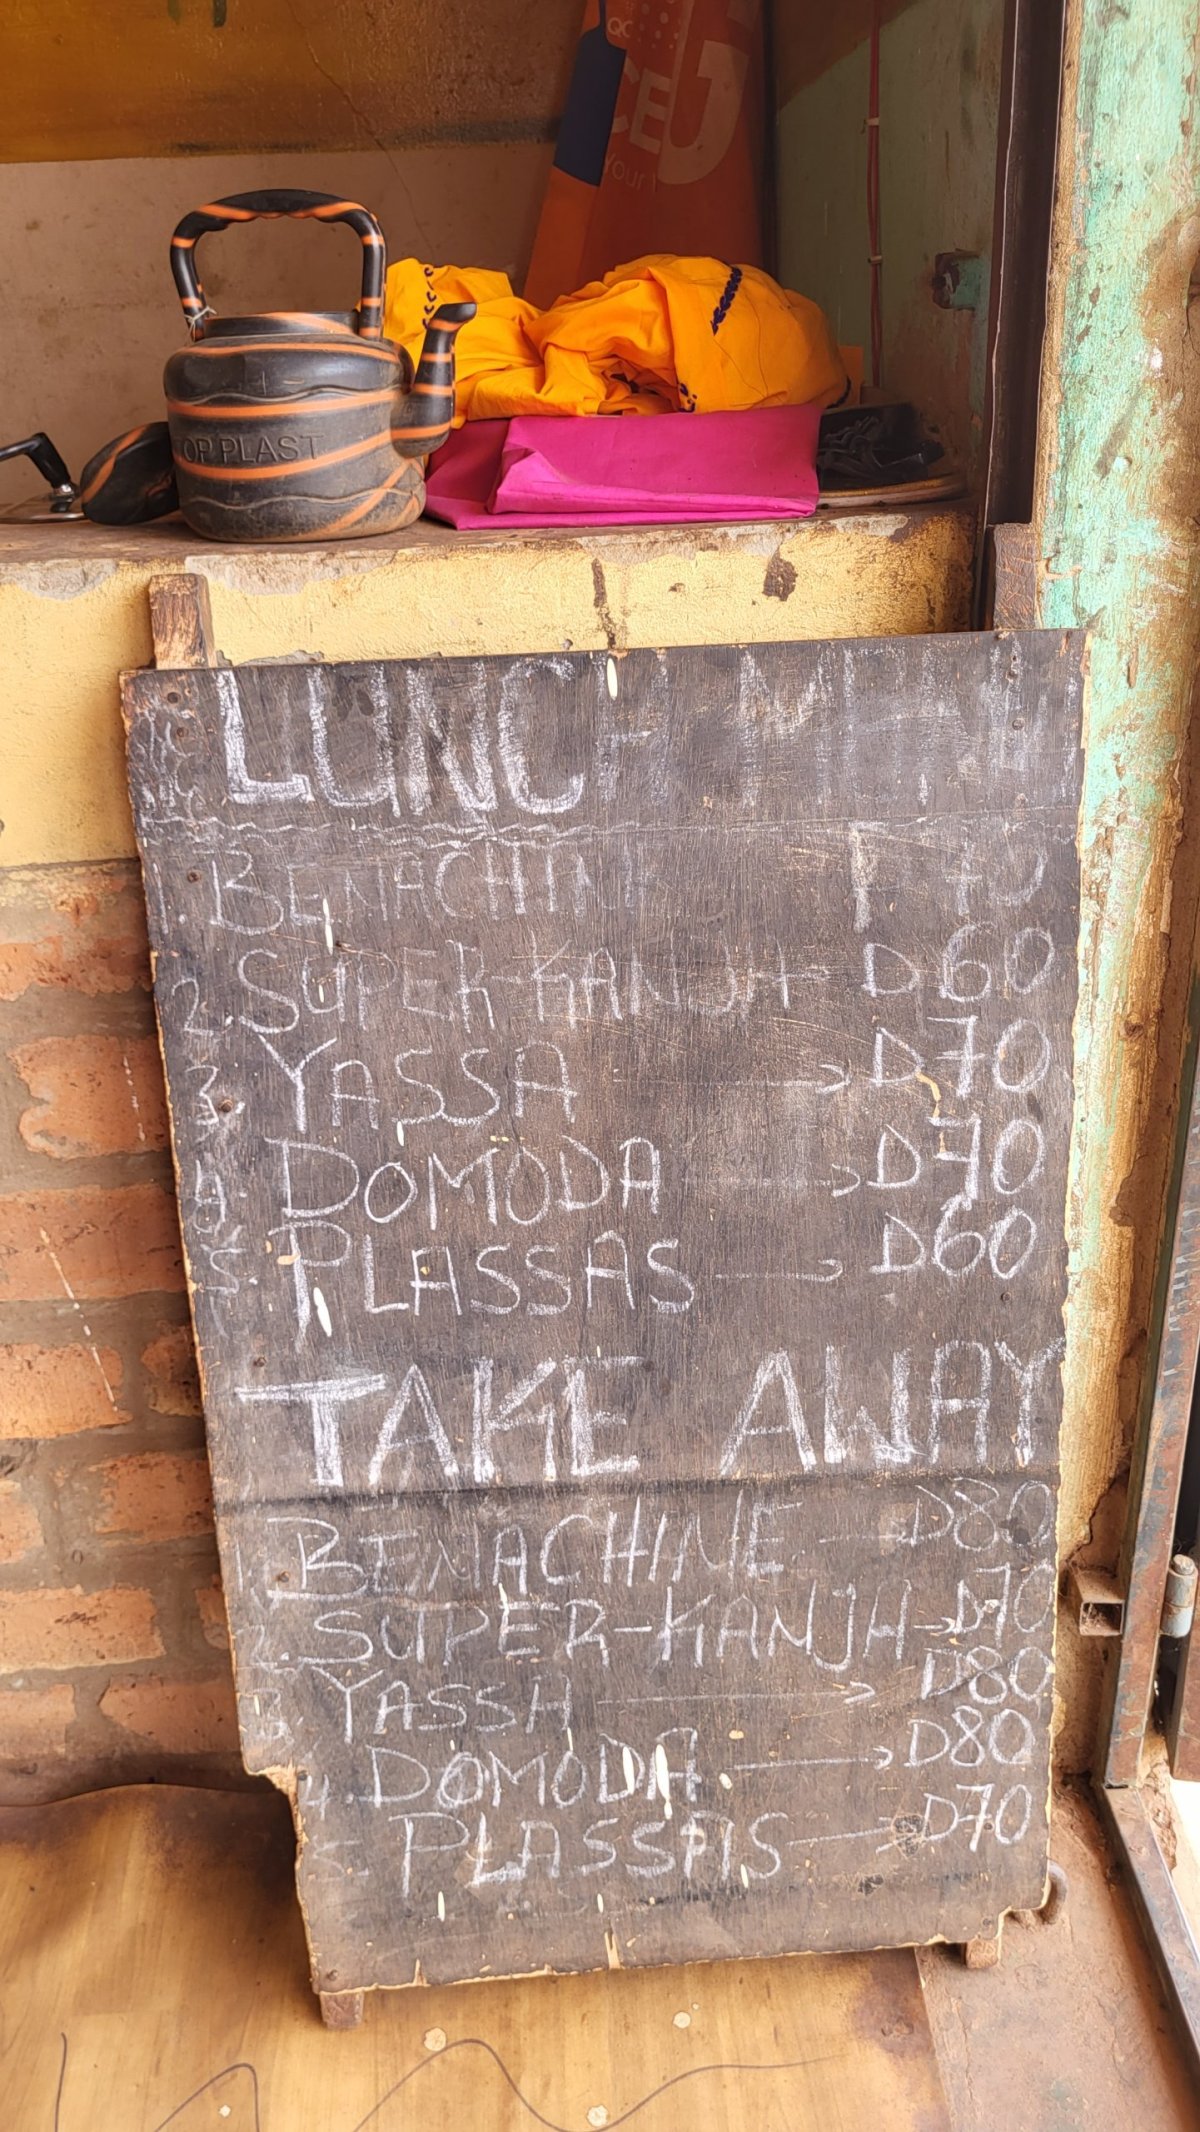 QC
CEU
OP PLAST
LUNCH MENU
1. BENACHINE 70
2. SUPER-KANJA D60
3. YASSA → D70
4. DOMODA → D70
5. PLASSAS → D60
TAKE AWAY
1. BENACHINE → D80
2. SUPER-KANJA → D70
3. YASSA → D80
4. DOMODA → D80
5 PLASSAS → D70